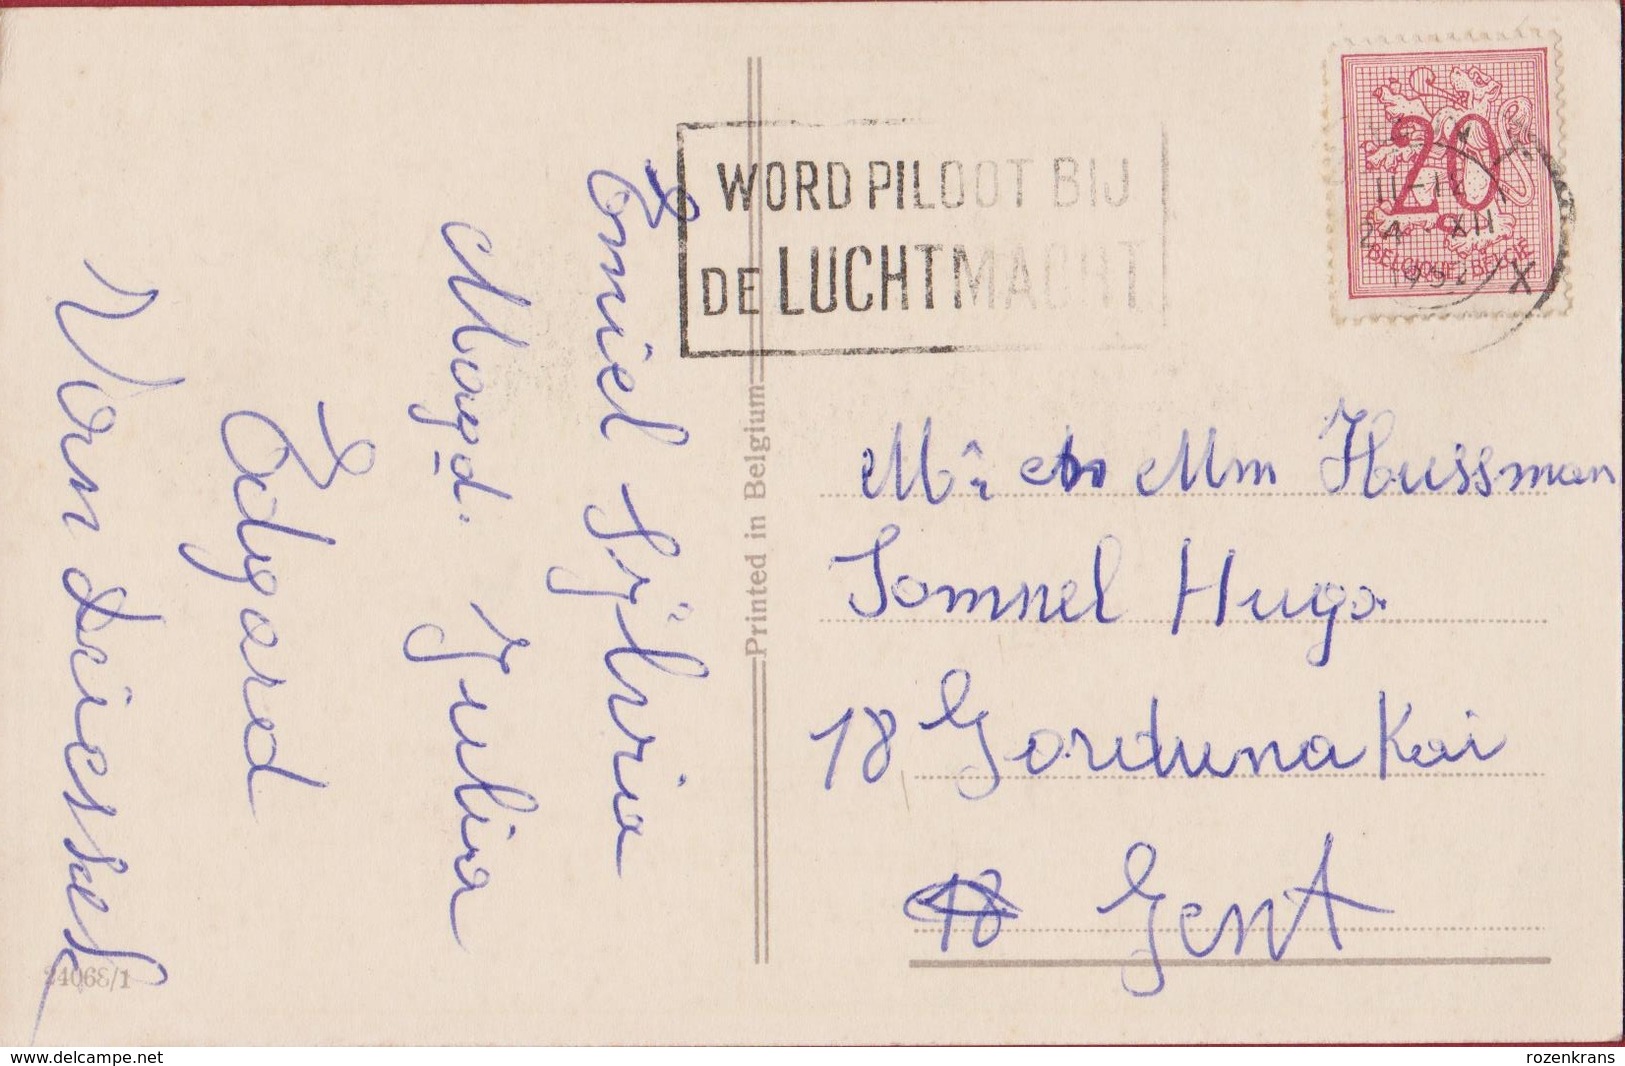 WORD PILOOT BIJ
DE LUCHTMACHT
20
BELGIQUE-BELGIË
11-12
24 XII
1952
X
Emiel Sylvia
Magd. Julia
Edgard
Van Driessche
Printed in Belgium
24068/1
Mr en Mm Hussman
Sommel Hugo
18 Gorduna Kai
18 Gent
www.delcampe.net
rozenkrans